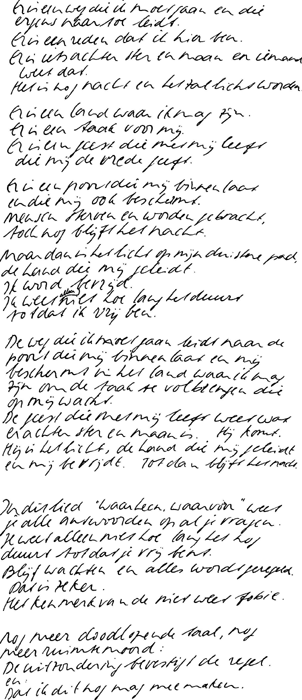 Er is een weg die ik moet gaan en die
ergens naar toe leidt.
Er is een reden dat ik hier ben.
Er is achter ster en maan en iemand
weet dat.
Het is nog nacht en het zal licht worden
Er is een land waar ik mag zijn.
Er is een taak voor mij.
Er is een geest die met mij leeft
die mij de vrede geeft.
Er is een poort die mij binnen laat
en die mij ook beschermt.
Mensen sterven en worden gebracht,
toch nog blijft het nacht.
Maar dan is het licht op mijn duistere pad,
de hand die mij geleidt.
Ik word bevrijd.
Ik weet niet hoe lang het duurt
tot dat ik vrij ben.
De weg die ik moet gaan leidt naar de
poort die mij binnen laat en mij
beschermt in het land waar ik mag
zijn om de taak te volbrengen die
op mij wacht.
De geest die met mij leeft weet wat
er achter ster en maan is. Hij komt.
Hij is het licht, de hand die mij geleidt
en mij bevrijdt. Tot dan blijft het nacht.
In dit lied "waarheen, waarvoor" weet
je alle antwoorden op al je vragen.
Je weet alleen niet hoe lang het nog
duurt tot dat je vrij bent.
Blijf wachten en alles wordt geregeld.
Dat is zeker.
Het kenmerk van de niet weet fobie.
Nog meer doodlopende taal, nog
meer ruimtemoord:
De uitzondering bevestigt de regel.
en:
Dat ik dit nog mag meemaken.